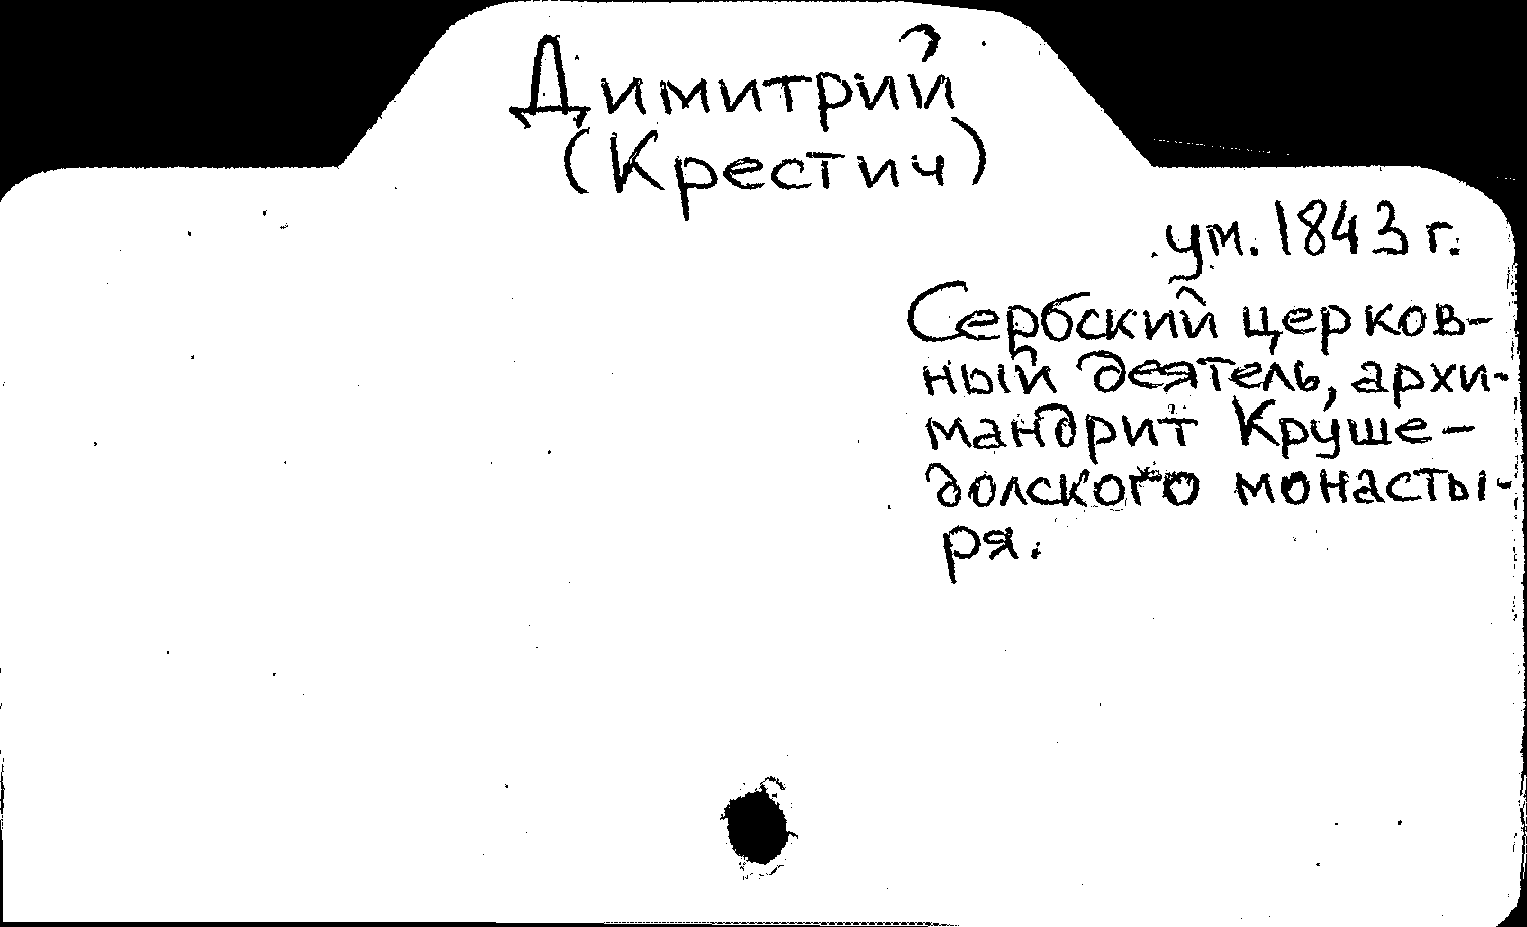 Димитрий
(Крестич)
ум. 1843 г.
Сербский церков-
ный деятель, архи-
мандрит Круше-
долского монасты-
ря.